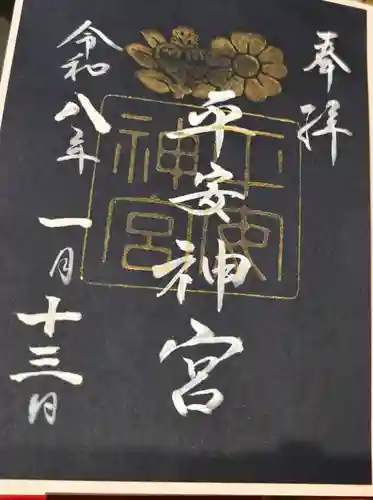 奉拝
平安神宮
令和八年
一月十三日
平安神宮